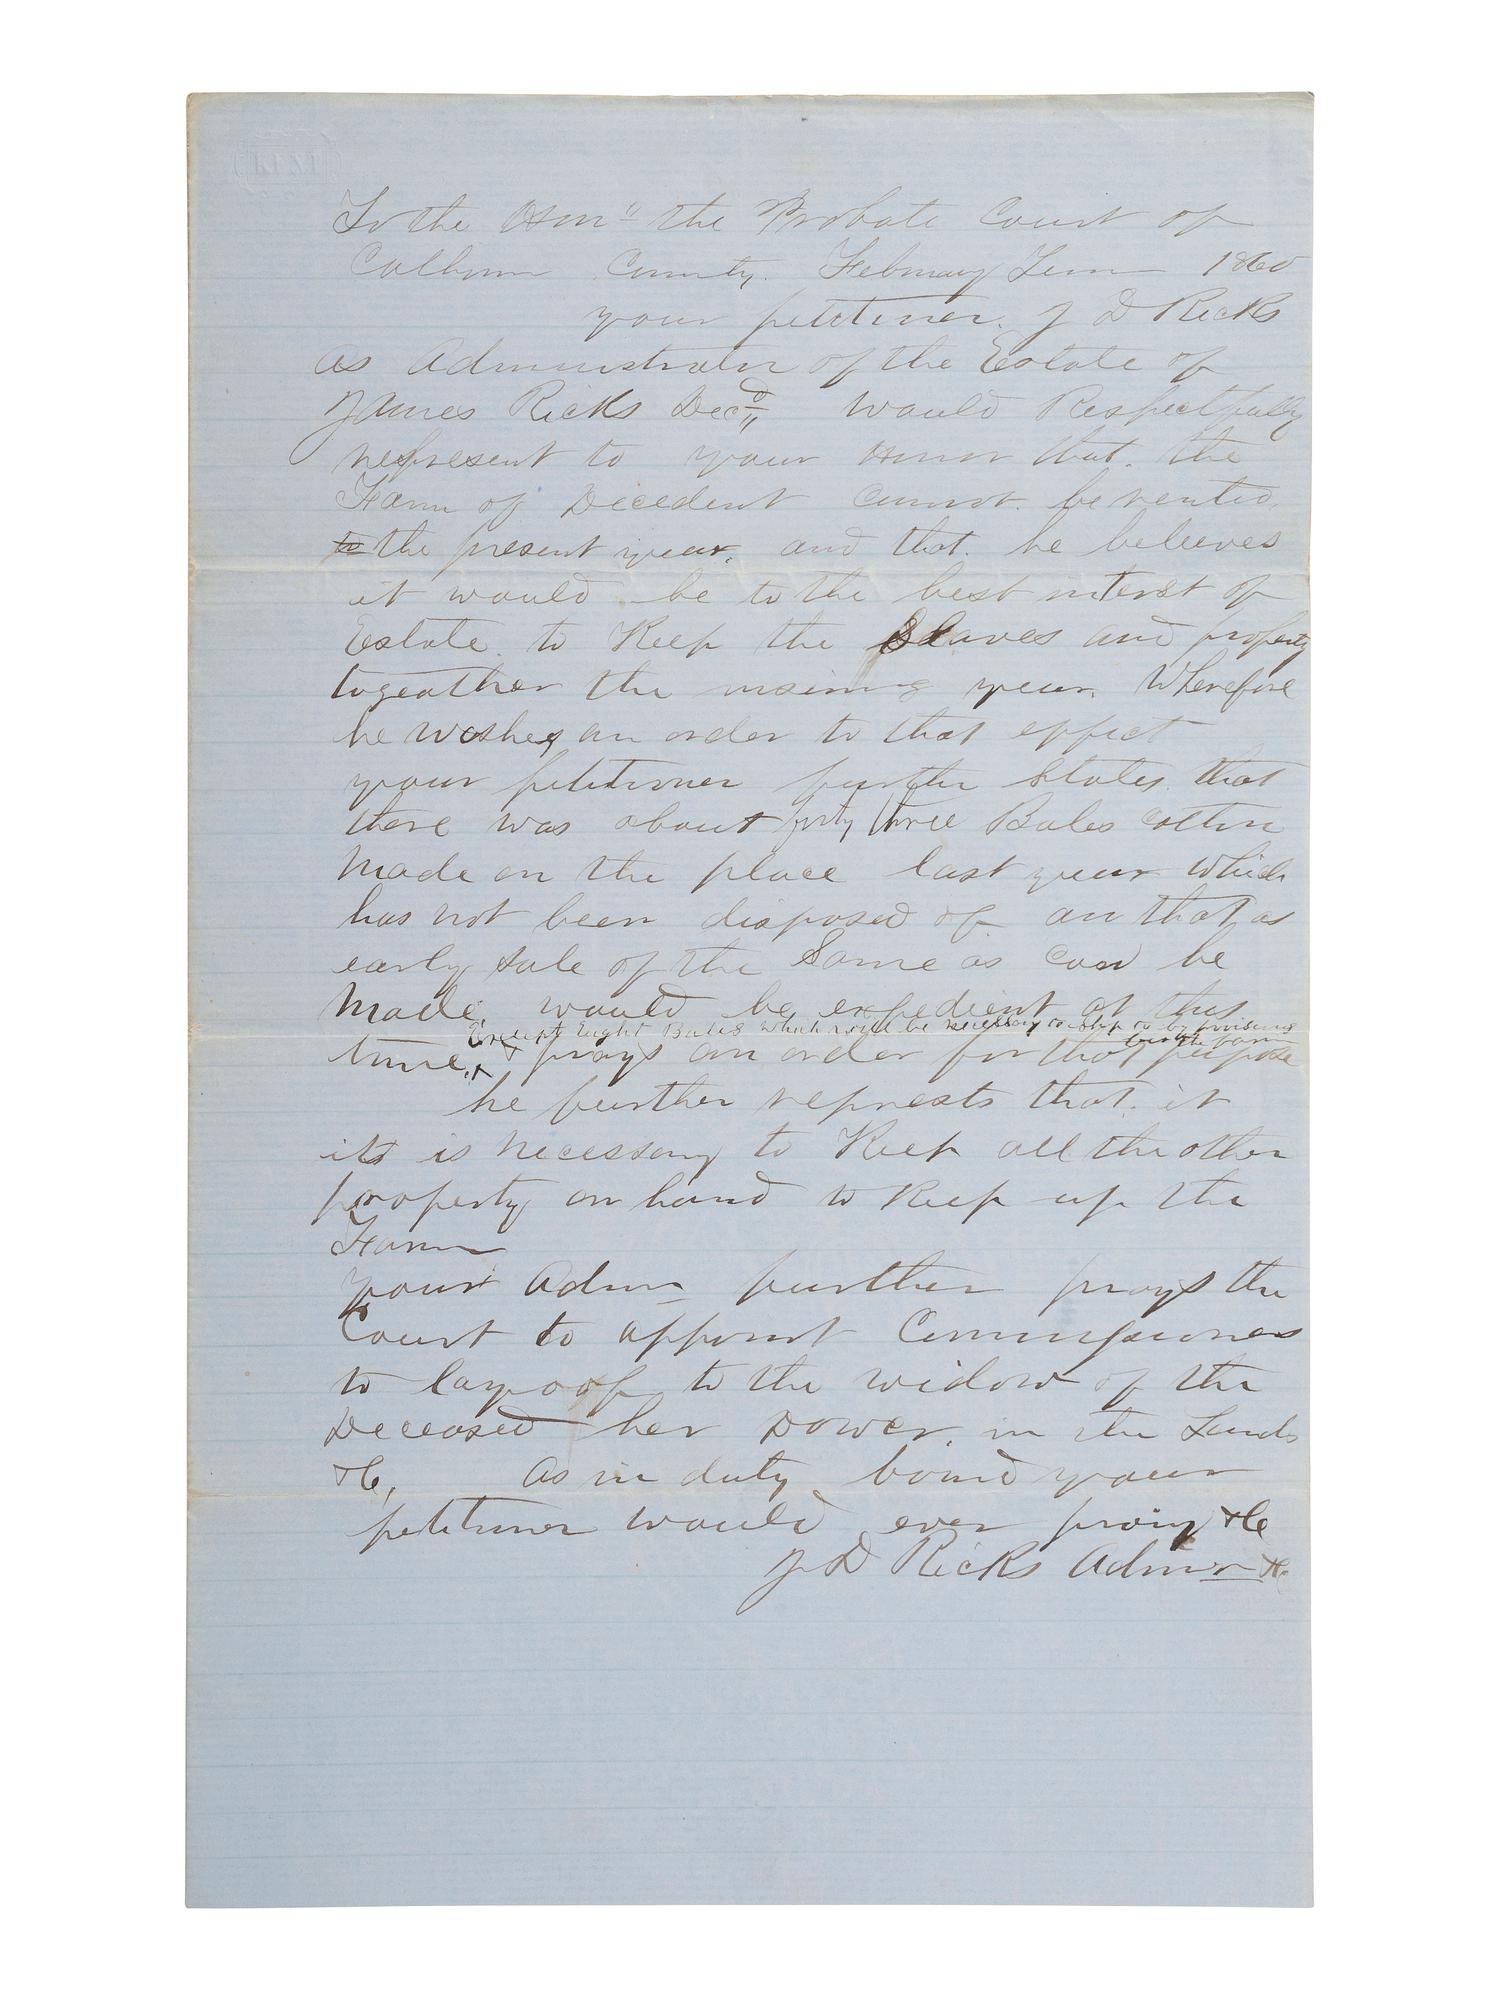 To the Hon" the Probate Court of
Calhoun County. February Term 1860
your petitiner. J D Ricks
as Administrator of the Estate of
James Ricks Decd would Respectfully
represent to your Honor that. the
Farm of Decedent cannot. be rented.
to the present year. and that. he beleeves
it would be to the best interst of
Estate. to Keep the Slaves and property
togeather the insuing year. Wherefore
he wishes an order to that effect
your petitioner further States. that
there was about forty three Bales cotten
Made on the place last year which
has not been disposed of. an that as
early sale of the Same as can be
Made. would be expedient at this
Except Eight Bales which will be necessary to
buy the farm
time. & prays an order for that purpose
he further represts that. it
its is necessary to Keep all the other
property on hand to Keep up the
Farm
your Admr further prays the
Court to appoint Commissioners
to lay oof to the widow of the
Deceased her Dower. in the Lands
&C, As in duty bound your
petitiner would ever pray &C
J D Ricks Admr &c